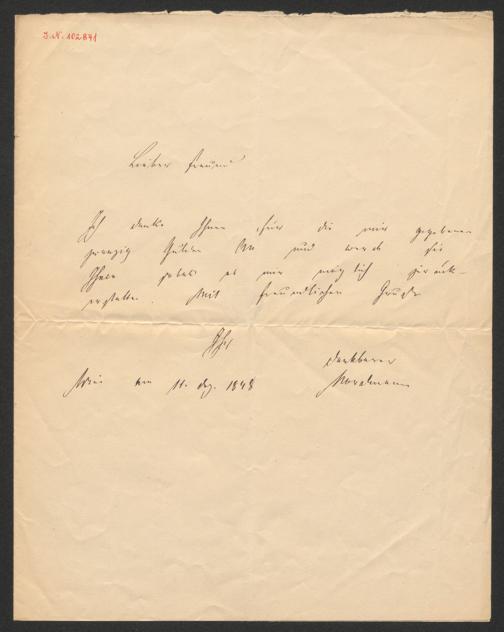 J.N. 102.841
Lieber Freund
Ich danke Ihnen für die mir gegebenen
zwanzig Gulden und werde sie
Ihnen sobald es nur möglich zurück-
erstatten. Mit freundlichem Gruße
Ihr
dankbarer
Wien am 11. Dez. 1848